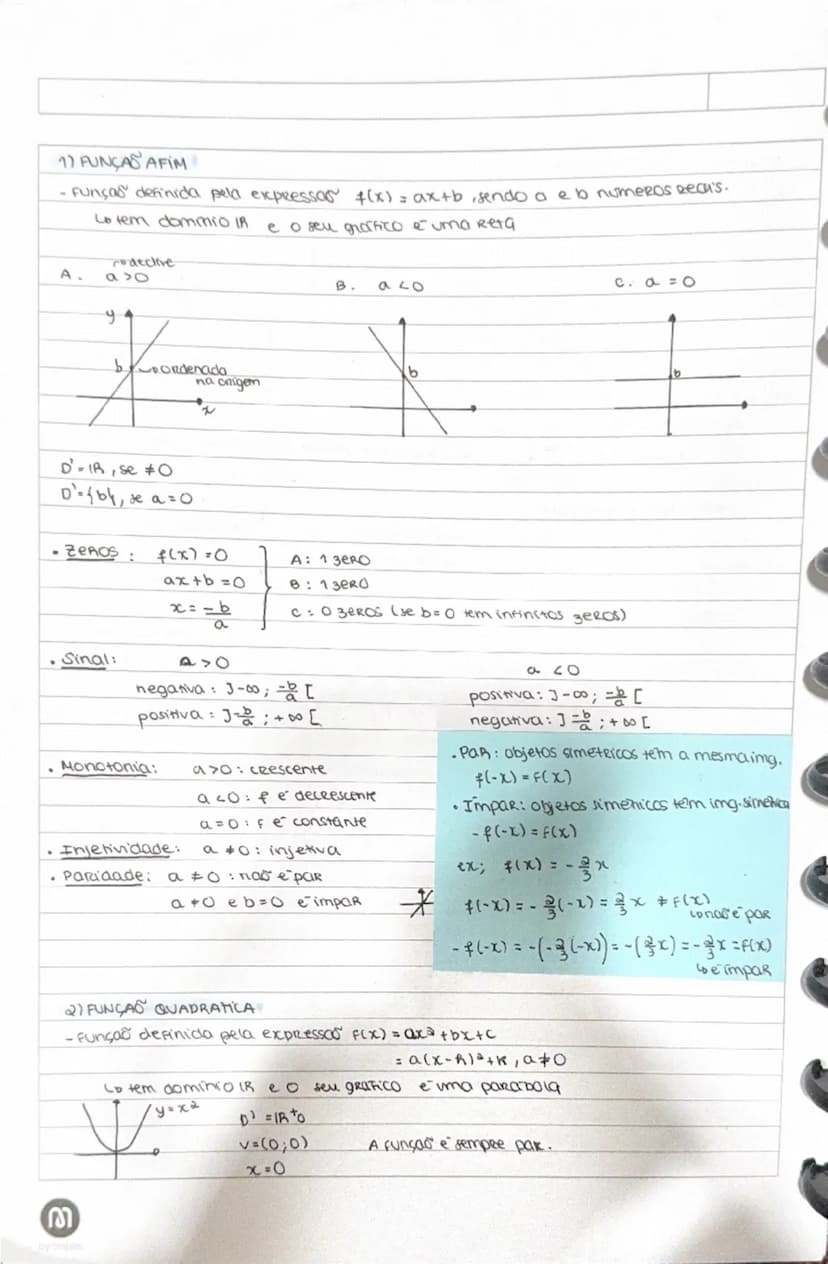 1) FUNÇÃO AFIM
- Função definida pela expressão f(x) = ax+b, sendo a e b numeros reais.
↳ tem dominio IR e o seu gráfico é uma Reta
↱ declive
A. a>0
B. a<0
C. a = 0
y
b ↳ ordenada
na origem
x
b
b
D' = IR, se ≠0
D' = {b}, se a=0
• Zeros: f(x) = 0
ax+b = 0
x = -b/a
A: 1 zero
B: 1 zero
C: 0 zeros (se b=0 tem infinitos zeros)
• Sinal: a>0
negativa: ]-∞; -b/a [
positiva: ]-b/a ; +∞ [
a <0
positiva: ]-∞; -b/a [
negativa: ]-b/a ; +∞ [
• Monotonia: a>0: crescente
a<0: f é decrescente
a=0: f é constante
• Injetividade: a ≠0: injetiva
• Paridade: a ≠0: não é par
a ≠0 e b=0 é impar
• Par: objetos simetricos têm a mesma img.
f(-x) = f(x)
• Ímpar: objetos simétricos têm img. simétrica
-f(-x) = f(x)
ex; f(x) = -2/3 x
f(-x) = -2/3(-x) = 2/3 x ≠ f(x)
↳ não é par
-f(-x) = -(-2/3(-x)) = -(2/3 x) = -2/3 x = f(x)
↳ é ímpar
2) FUNÇÃO QUADRATICA
- Função definida pela expressão f(x) = ax²+bx+c
= a(x-h)²+k, a≠0
↳ tem domínio IR e o seu gráfico é uma parabola
y=x²
D' = IR⁺0
V=(0;0) A função é sempre par.
x=0
m